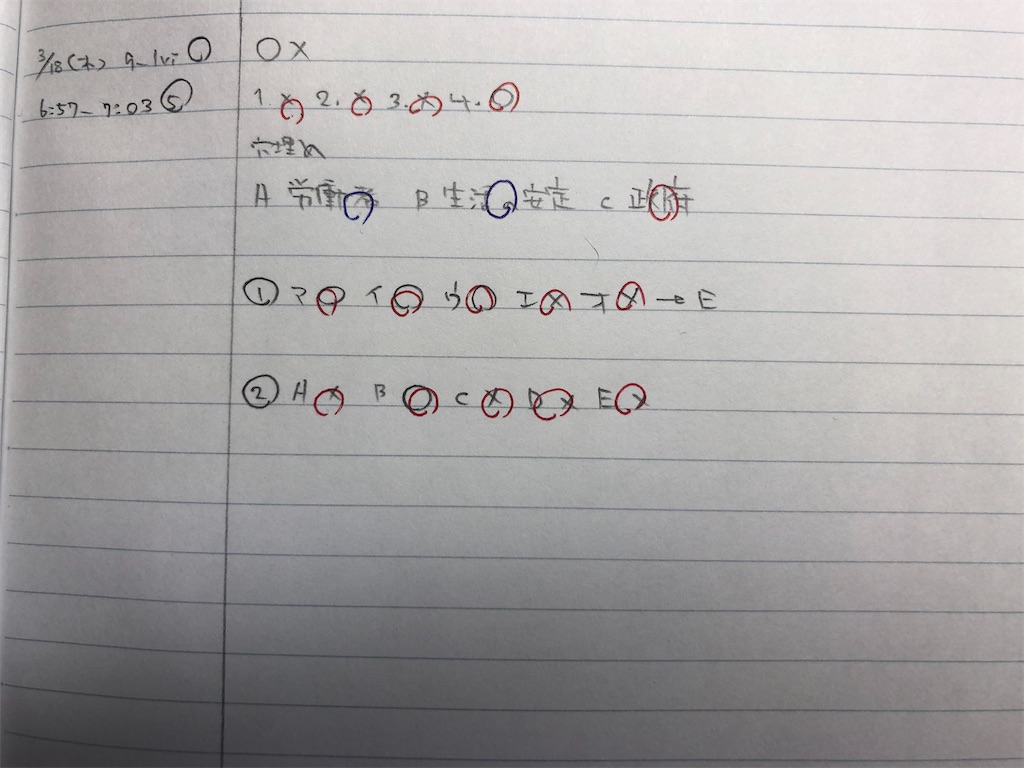 3/18(木)
○×
6:57-7:03 ⑤
1. × 2. × 3. × 4. ○
穴埋め
A 労働者 B 生活の安定 C 政府
① ア ○ イ ○ ウ ○ エ × オ × → E
② A × B ○ C × D × E ×